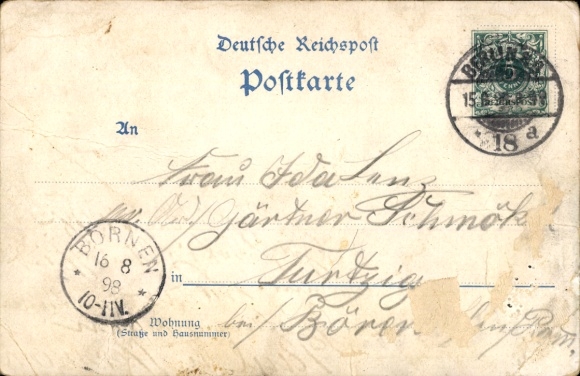 Deutsche Reichspost
Postkarte
An
Frau Ida Lenz
Gärtner Schmök
in Turtzig
Wohnung
(Straße und Hausnummer)
bei
BERLIN
15.8.
18 a
BÖRNEN
16 8
98
10-11V.
5